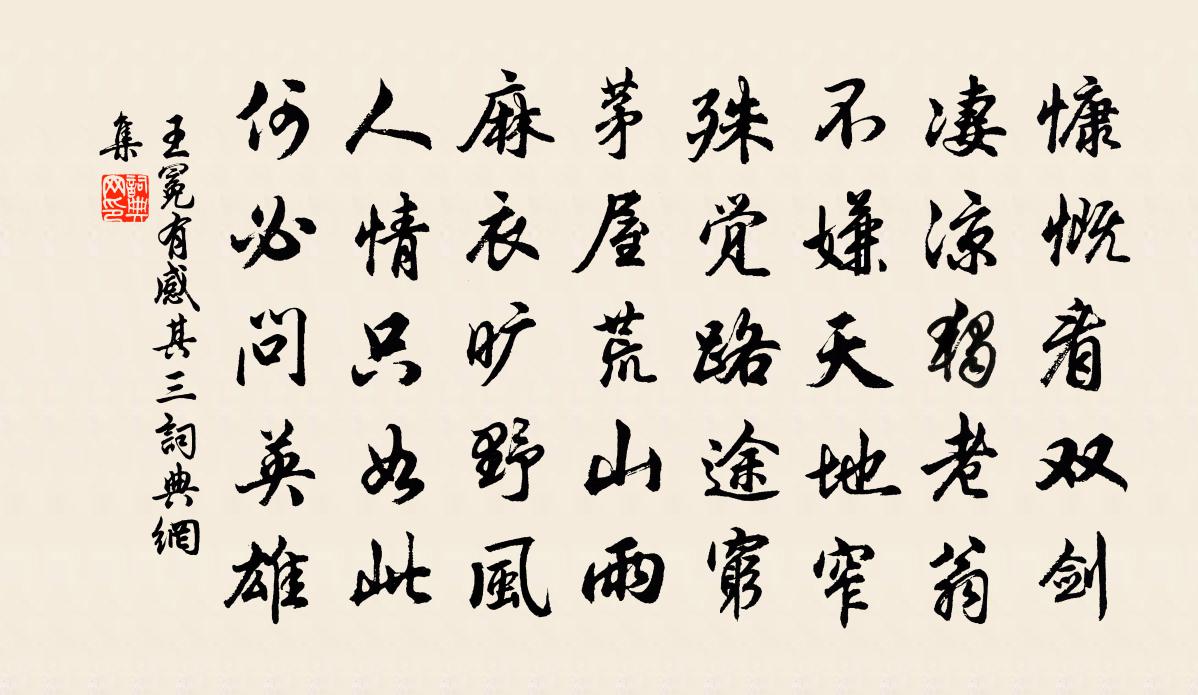 慷慨看双剑
凄凉独老翁
不嫌天地窄
殊觉路途窮
茅屋荒山雨
麻衣旷野風
人情只如此
何必问英雄
王冕有感其三詞典網
集
詞典
网印